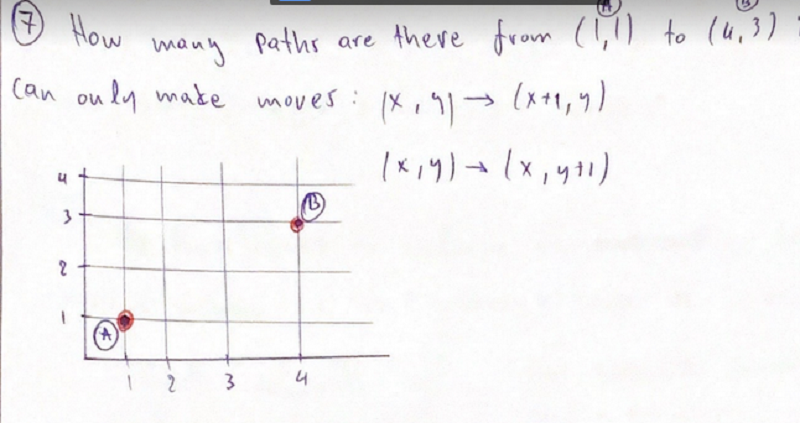 ⑦ How many paths are there from (1,1) to (4,3)
Ⓐ Ⓑ
can only make moves: (x, y) → (x+1, y)
(x, y) → (x, y+1)
4
3
2
1
Ⓑ
Ⓐ
1 2 3 4